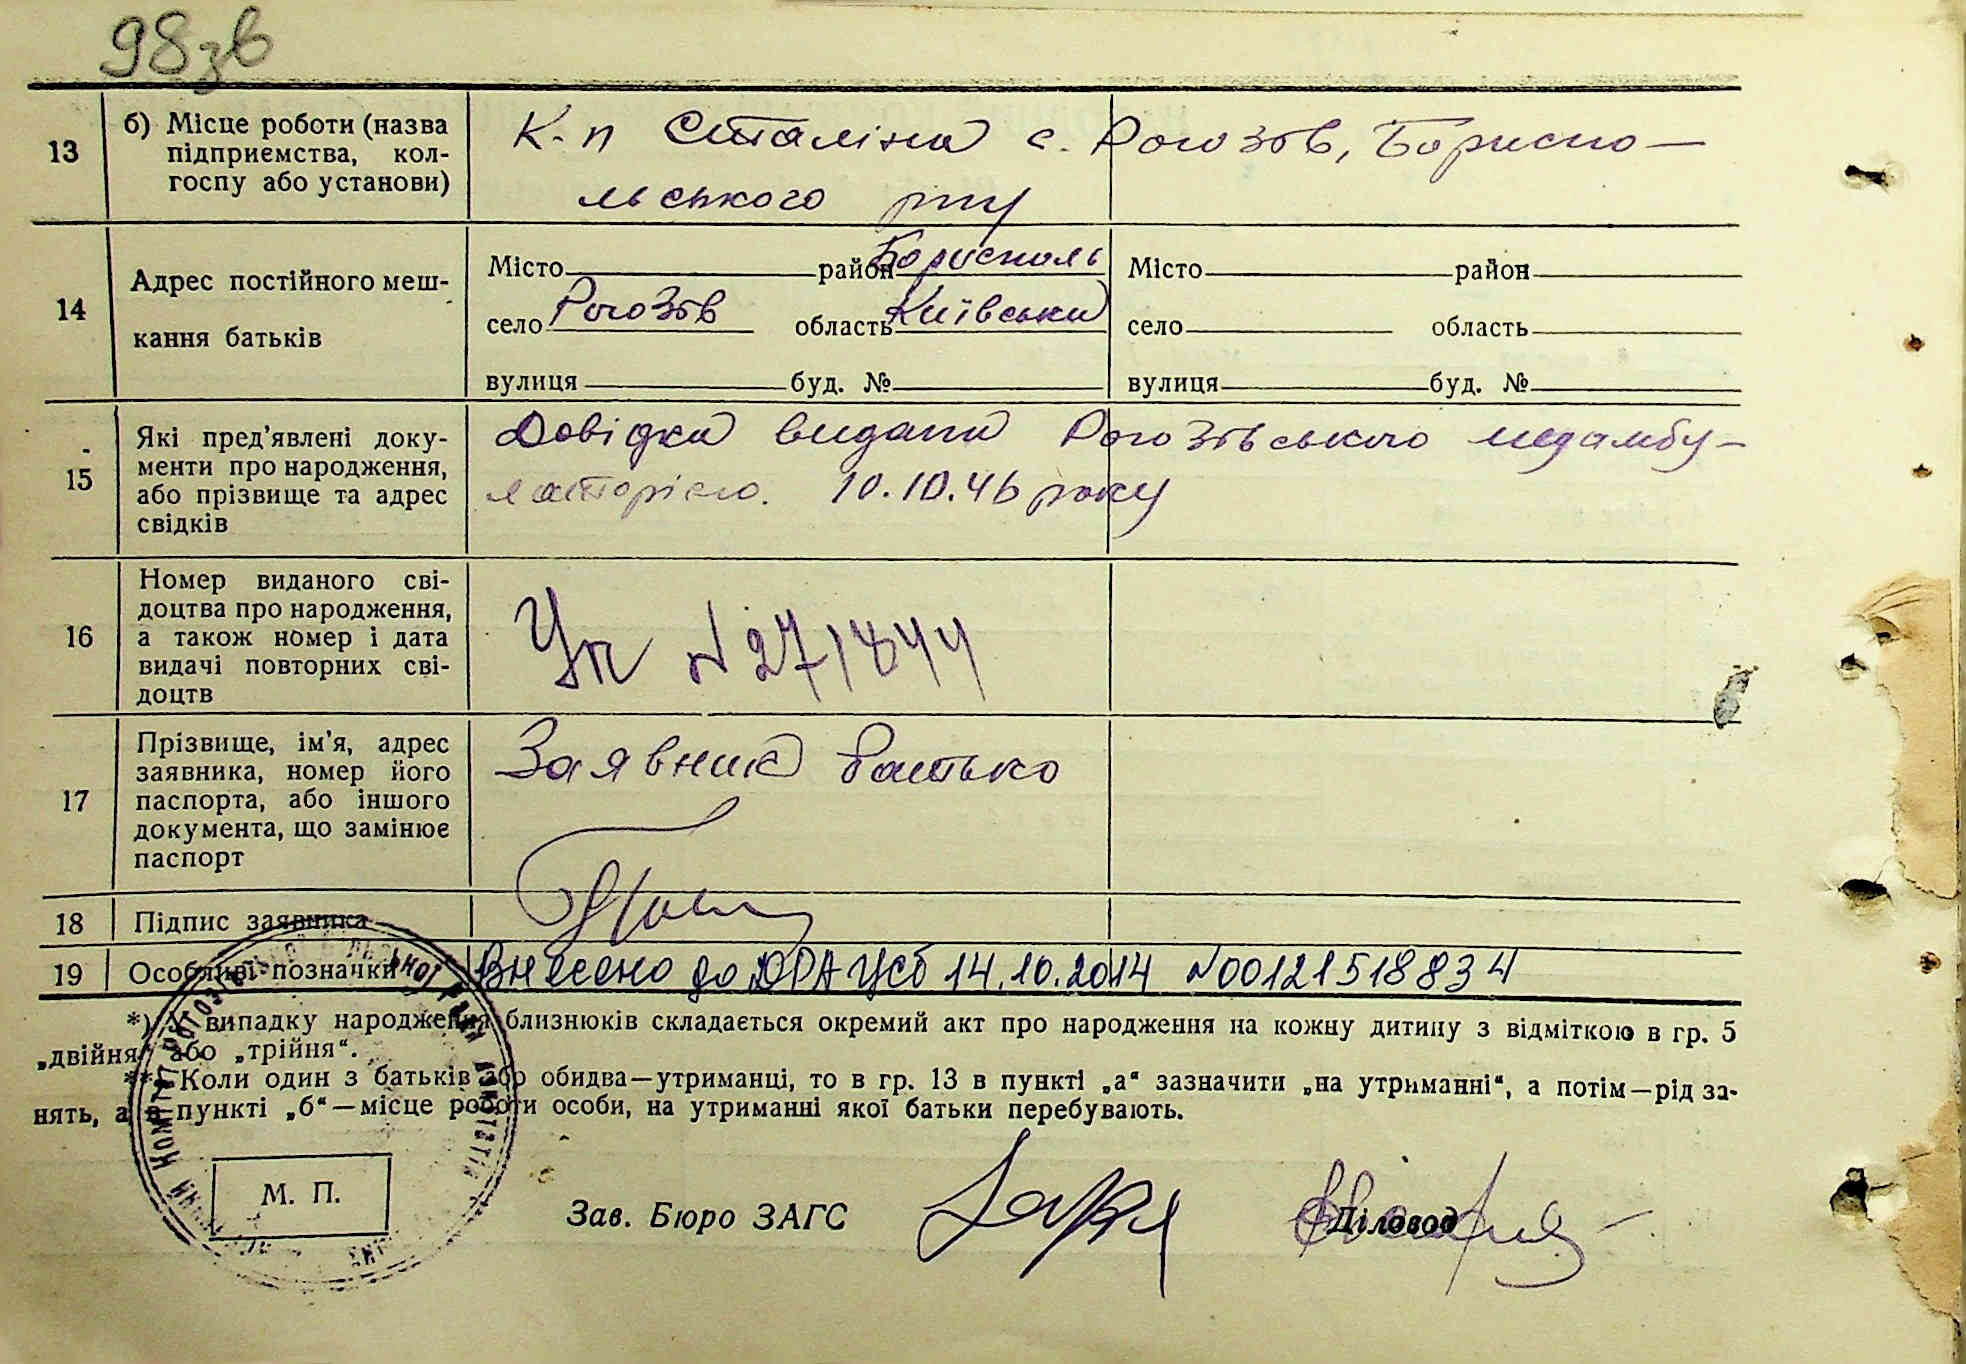 98зв
13
б) Місце роботи (назва
підприємства, кол-
госпу або установи)
К-п Сталіна с. Рогозів, Бориспо-
льського р-ну
14
Адрес постійного меш-
кання батьків
Місто район Бориспіль
село Рогозів область Київська
вулиця буд. №
Місто район
село область
вулиця буд. №
15
Які пред'явлені доку-
менти про народження,
або прізвище та адрес
свідків
Довідка видана Рогозівською медамбу-
латорією. 10.10.46 року
16
Номер виданого сві-
доцтва про народження,
а також номер і дата
видачі повторних сві-
доцтв
№271844
17
Прізвище, ім'я, адрес
заявника, номер його
паспорта, або іншого
документа, що замінює
паспорт
Заявник батько
18
Підпис заявника
19
Особливі позначки
Внесено до ДРАЦСб 14.10.2014 №00121518834
*) У випадку народження близнюків складається окремий акт про народження на кожну дитину з відміткою в гр. 5
„двійня" або „трійня".
** Коли один з батьків або обидва—утриманці, то в гр. 13 в пункті „а" зазначити „на утриманні", а потім—рід за-
нять, а в пункті „б"—місце роботи особи, на утриманні якої батьки перебувають.
М. П.
Зав. Бюро ЗАГС
Діловод